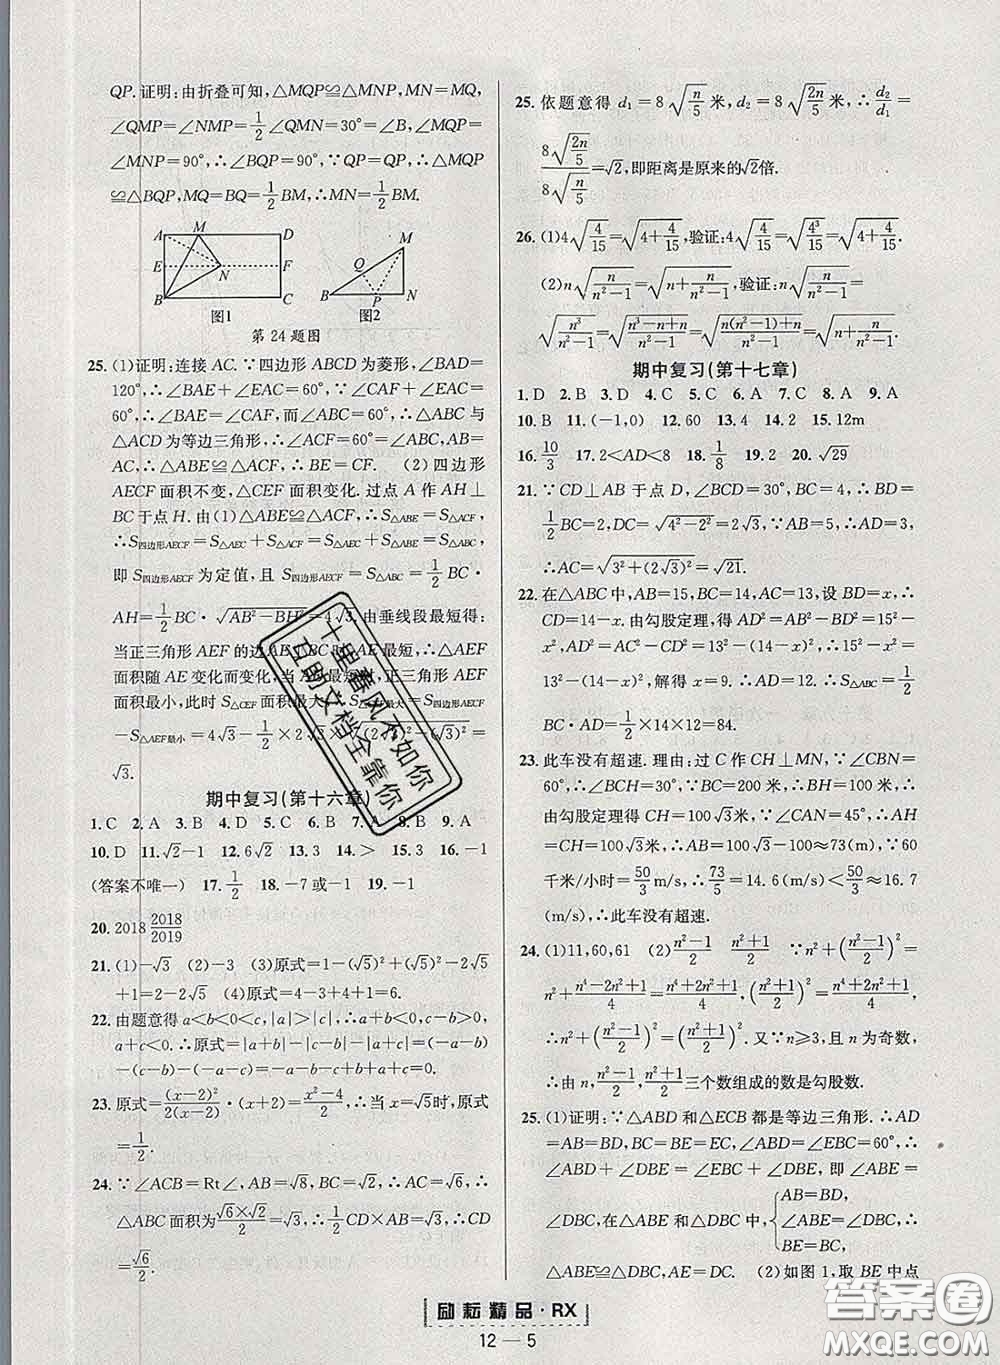 QP.证明:由折叠可知,△MQP≌△MNP,MN=MQ,
∠QMP=∠NMP=1/2∠QMN=30°=∠B,∠MQP=
∠MNP=90°,∴∠BQP=90°.∵QP=QP,∴△MQP
≌△BQP,MQ=BQ=1/2BM,∴MN=1/2BM.
A M D
E N F
B C
图1
M
Q
B P N
图2
第24题图
25.(1)证明:连接AC.∵四边形ABCD为菱形,∠BAD=
120°,∴∠BAE+∠EAC=60°,∠CAF+∠EAC=
60°,∴∠BAE=∠CAF,而∠BAC=60°,∴△ABC与
△ACD为等边三角形,∴∠ACF=60°=∠ABC,AC=
AB,∴△ABE≌△ACF,∴BE=CF. (2)四边形
AECF面积不变,△CEF面积变化.过点A作AH⊥
BC于点H.由(1)△ABE≌△ACF,∴S△ABE=S△ACF,
∴S四边形AECF=S△AEC+S△ACF=S△AEC+S△ABE=S△ABC,
即S四边形AECF为定值,且S四边形AECF=S△ABC=1/2BC·
AH=1/2BC·√(AB²-BH²)=4√3.由垂线段最短得:
当正三角形AEF的边AE⊥BC时,AE最短,∴△AEF
面积随AE变化而变化,当AE最短时,正三角形AEF
面积最小,此时S△CEF面积最大
-S△AEF最小=4√3-1/2×2√3
√3.
期中复习(第十六章)
1.C 2.A 3.B 4.D 5.C 6.B 7.A 8.B 9.A
10.D 11.√2-1 12.6√2 13.3 14.> 15.3 16.-1
(答案不唯一) 17.1/2 18.-7或-1 19.-1
20.2018 2018/2019
21.(1)-√3 (2)-3 (3)原式=1-(√5)²+(√5)²-2√5
+1=2-2√5 (4)原式=4-3+4+1=6.
22.由题意得a<b<0<c,|a|>|c|,∴a+b<0,c-b>0,
a+c<0.∴原式=|a+b|-|c-b|+|a+c|=(-a-b)
-(c-b)+(-a-c)=-2a-b-2c.
23.原式=(x-2)²/2(x-2)·(x+2)=(x²-4)/2,∴当x=√5时,原式
=1/2.
24.∵∠ACB=Rt∠,AB=√8,BC=√2,∴AC=√6,∴
△ABC面积为(√6×√2)/2=√3,∴1/2CD×AB=√3,∴CD
=√6/2.
25.依题意得d₁=8√(n/5)米,d₂=8√(2n/5)米,∴d₂/d₁=
8√(2n/5)/8√(n/5)=√2,即距离是原来的√2倍.
26.(1)4√(4/15)=√(4+4/15),验证:4√(4/15)=√(4³/15)=√(4+4/15).
(2)n√(n/(n²-1))=√(n+n/(n²-1)),验证:n√(n/(n²-1))=
√(n³/(n²-1))=√((n³-n+n)/(n²-1))=√((n(n²-1)+n)/(n²-1))=√(n+n/(n²-1)).
期中复习(第十七章)
1.D 2.B 3.D 4.C 5.C 6.A 7.C 8.A 9.A
10.B 11.(-1,0) 12.60 13.4 14.2 15.12m
16.10/3 17.2<AD<8 18.1/8 19.2 20.√29
21.∵CD⊥AB于点D,∠BCD=30°,BC=4,∴BD=
1/2BC=2,DC=√(4²-2²)=2√3,∵AB=5,∴AD=3,
∴AC=√(3²+(2√3)²)=√21.
22.在△ABC中,AB=15,BC=14,AC=13,设BD=x,∴
CD=14-x.由勾股定理,得AD²=AB²-BD²=15²-
x²,AD²=AC²-CD²=13²-(14-x)²,∴15²-x²=
13²-(14-x)²,解得x=9.∴AD=12.∴S△ABC=1/2
BC·AD=1/2×14×12=84.
23.此车没有超速.理由:过C作CH⊥MN,∵∠CBN=
60°,∴∠BCH=30°,∵BC=200米,∴BH=100米,∴
由勾股定理得CH=100√3米,∵∠CAN=45°,∴AH
=CH=100√3米,∴AB=100√3-100≈73(m),∵60
千米/小时=50/3m/s,∴73/5=14.6(m/s)<50/3≈16.7
(m/s),∴此车没有超速.
24.(1)11,60,61 (2)(n²-1)/2 (n²+1)/2 ∵n²+((n²-1)/2)²=
n²+(n⁴-2n²+1)/4=(n⁴+2n²+1)/4,((n²+1)/2)²=(n⁴+2n²+1)/4,
∴n²+((n²-1)/2)²=((n²+1)/2)².又∵n≥3,且n为奇数,
∴由n,(n²-1)/2,(n²+1)/2三个数组成的数是勾股数.
25.(1)证明:∵△ABD和△ECB都是等边三角形.∴AD
=AB=BD,BC=BE=EC,∠ABD=∠EBC=60°,∴
∠ABD+∠DBE=∠EBC+∠DBE,即∠ABE=
∠DBC,在△ABE和△DBC中,{AB=BD, ∠ABE=∠DBC, BE=BC, ∴
△ABE≌△DBC,AE=DC. (2)如图1,取BE中点
励耘精品·RX
12—5
十里春风不如你
互助文档全靠你
答案圈
MXQE.COM